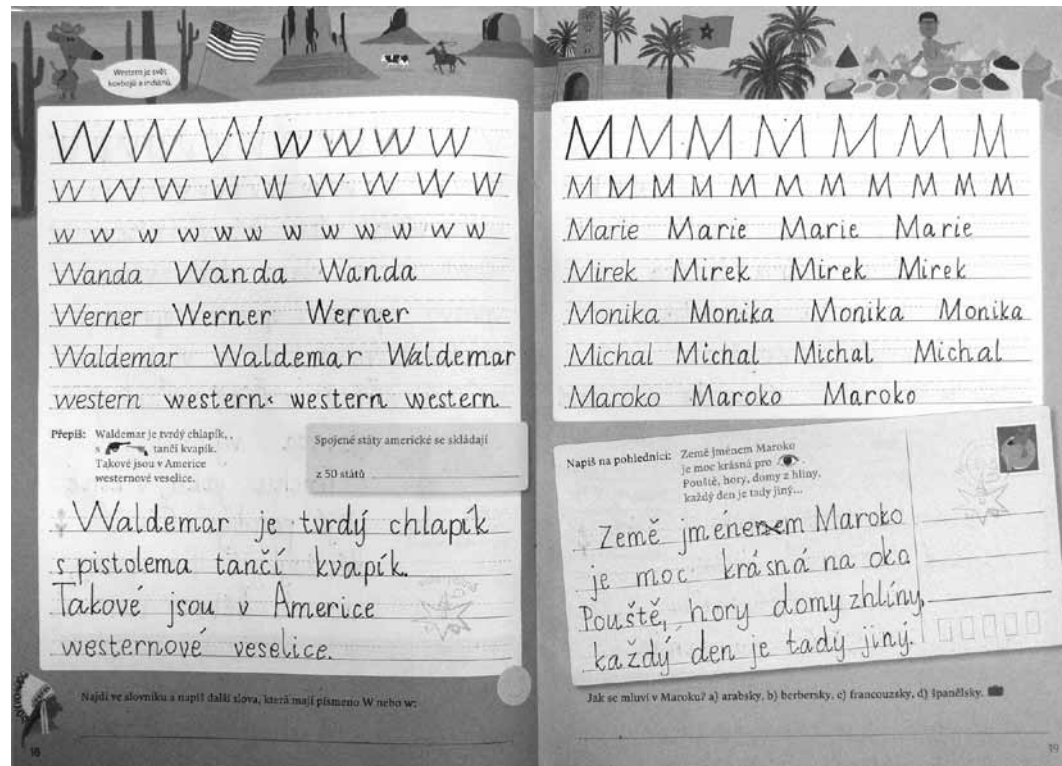 Western je svět
kovbojů a indiánů.
W W W W W W W W
W W W W W W W W W
w w w w w w w w w w w
Wanda Wanda Wanda
Werner Werner Werner
Waldemar Waldemar Waldemar
western western western western
Přepiš: Waldemar je tvrdý chlapík,
s tančí kvapík.
Takové jsou v Americe
westernové veselice.
Spojené státy americké se skládají
z 50 států
Waldemar je tvrdý chlapík
s pistolema tančí kvapík.
Takové jsou v Americe
westernové veselice.
Najdi ve slovníku a napiš další slova, která mají písmeno W nebo w:
18
M M M M M M M M
M M M M M M M M M M M
Marie Marie Marie Marie
Mirek Mirek Mirek Mirek
Monika Monika Monika Monika
Michal Michal Michal Michal
Maroko Maroko Maroko
Napiš na pohlednici: Země jménem Maroko
je moc krásná pro
Pouště, hory, domy z hlíny,
každý den je tady jiný...
Země jménem Maroko
je moc krásná na oko
Pouště, hory domy zhlíny,
každý den je tady jiný.
Jak se mluví v Maroku? a) arabsky, b) berbersky, c) francouzsky, d) španělsky.
19